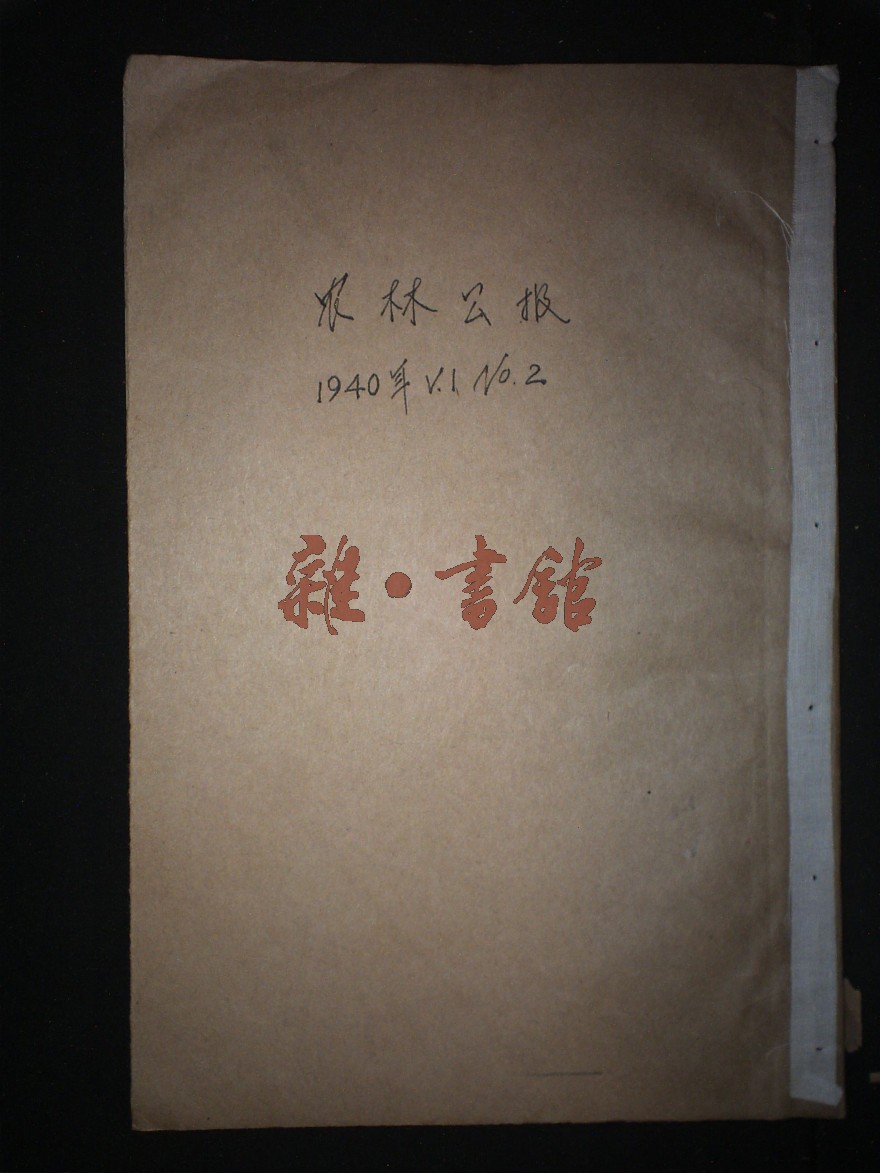 农林公报
1940年 V.1. No.2
雜·書館